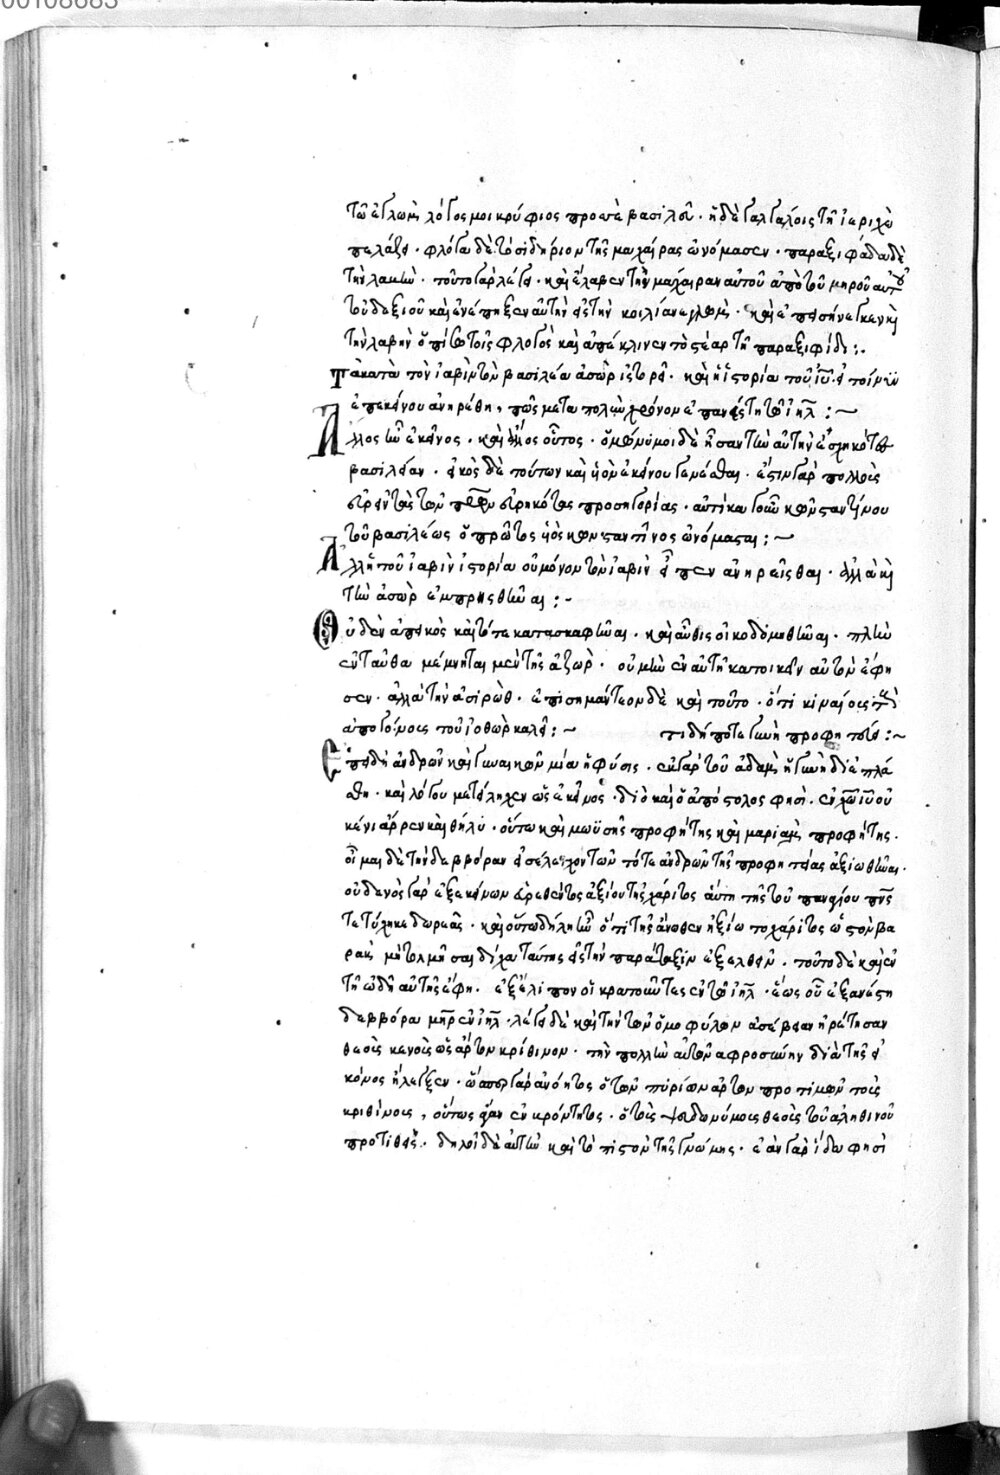 00108683
τῶ ἐγλώμ, λόγος μοι κρύφιος πρὸς σὲ βασιλεῦ. ἡ δὲ γαλγάλοις τῇ ἱεριχὼ
πελάζει. φλόγα δὲ τὸ σιδήριον τῆς μαχαίρας ὠνόμασεν. παραξιφίδα δὲ
τὴν λαβὴν. τοῦτο γὰρ λέγει. καὶ ἔλαβεν τὴν μάχαιραν αὐτοῦ ἀπὸ τοῦ μηροῦ αὐτοῦ
τοῦ δεξιοῦ καὶ ἐνέπηξεν αὐτὴν εἰς τὴν κοιλίαν ἐγλώμ. καὶ ἐπεσήνεγκεν καὶ
τὴν λαβὴν ὄπισθεν τῆς φλογὸς καὶ ἀπέκλινεν τὸ στέαρ τῇ παραξιφίδι :.
Τὰ κατὰ τὸν ἰαβὶν τὸν βασιλέα ἀσὼρ ἱστορεῖ. καὶ ἡ ἱστορία τοῦ ἰυ.
ἐπ' ἐκείνου ἀνηρέθη, πῶς μετὰ πολὺν χρόνον ἐπανέστη τῶ ἰηλ :~
Ἄλλος ἦν ἐκεῖνος. καὶ ἄλλος οὗτος. ὁμώνυμοι δὲ ἦσαν τὴν αὐτὴν ἐσχηκότες
βασιλείαν. εἰκὸς δὲ τοῦτον καὶ υἱὸν ἐκείνου γενέσθαι. ἔστιν γὰρ πολλοὺς
εὑρεῖν τὰς τῶν πρων εἰρηκότας προσηγορίας. αὐτίκα γοῦν κωνσταντίνου
τοῦ βασιλέως ὁ πρῶτος υἱὸς κωνσταντῖνος ὠνόμασται :~
Ἀλλ' ἡ τοῦ ἰαβὶν ἱστορία οὐ μόνον τὸν ἰαβὶν εἶπεν ἀνῃρεῖσθαι. ἀλλὰ καὶ
τὴν ἀσὼρ ἐμπρησθῆναι :~
Οὐδὲν ἀπεικὸς καὶ τότε κατασκαφῆναι. καὶ αὖθις οἰκοδομηθῆναι. πλὴν
ἐνταῦθα μέμνηται μὲν τῆς ἀζώρ. οὐ μὴν ἐν αὐτῇ κατοικεῖν αὐτὸν ἔφη
σεν. ἀλλὰ τὴν ἀσιρὼθ. ἐπισημαντέον δὲ καὶ τοῦτο. ὅτι κιναίους τοὺς
ἀπογόνους τοῦ ἰοθὼρ καλεῖ :~ τί δήποτε γυνὴ προφητεύει :~
Ἐπειδὴ ἀνδρῶν καὶ γυναικῶν μία ἡ φύσις. ἐκ γὰρ τοῦ ἀδὰμ ἡ γυνὴ διεπλά
σθη. καὶ λόγου μετείληχεν ὡς ἐκεῖνος. διὸ καὶ ὁ ἀπόστολος φησὶ. ἐν χω ιυ οὐ
κ ἔνι ἄρρεν καὶ θῆλυ. οὕτω καὶ μωϋσῆς προφήτης καὶ μαριὰμ προφήτης.
οἶμαι δὲ τὴν δεββόραν εἰς ἔλεγχον τῶν τότε ἀνδρῶν τῆς προφητείας ἀξιωθῆναι.
οὐδενὸς γὰρ ἐξ ἐκείνων εὑρεθέντος ἀξίου τῆς χάριτος αὕτη τῆς τοῦ παναγίου πνς
τετύχηκε δωρεᾶς. καὶ οὕτω δήλη ἦν ὅτι τῆς ἄνωθεν ἠξίωτο χάριτος ὡς τὸν βα
ρὰκ μὴ τολμῆσαι δίχα ταύτης εἰς τὴν παράταξιν ἐξελθεῖν. τοῦτο δὲ καὶ ἐν
τῇ ὠδῇ αὐτῆς ἔφη. ἐξέλιπον οἱ κρατοῦντες ἐν τῶ ἰηλ. ἕως οὗ ἐξανέστη
δεββόρα μηρ ἐν ἰηλ. λέγει δὲ καὶ τὴν τῶν ὁμοφύλων ἀσέβειαν ᾑρέτησαν
θεοὺς κενοὺς ὡς ἄρτον κρίθινον. τὴν πολλὴν αὐτῶν ἀφροσύνην διὰ τῆς εἰ
κόνος ἤλεγξεν. ὥσπερ γὰρ ἀνόητος ὁ τῶν πυρίνων ἄρτων προτιμῶν τοὺς
κριθίνους, οὕτως ἄγαν ἐμβρόντητος. ὁ τοὺς ψευδωνύμους θεοὺς τοῦ ἀληθινοῦ
προτιθείς. δηλοῖ δὲ αὐτῶν καὶ τὸ πιστὸν τῆς γνώμης. ἐὰν γὰρ ἴδω φησὶ